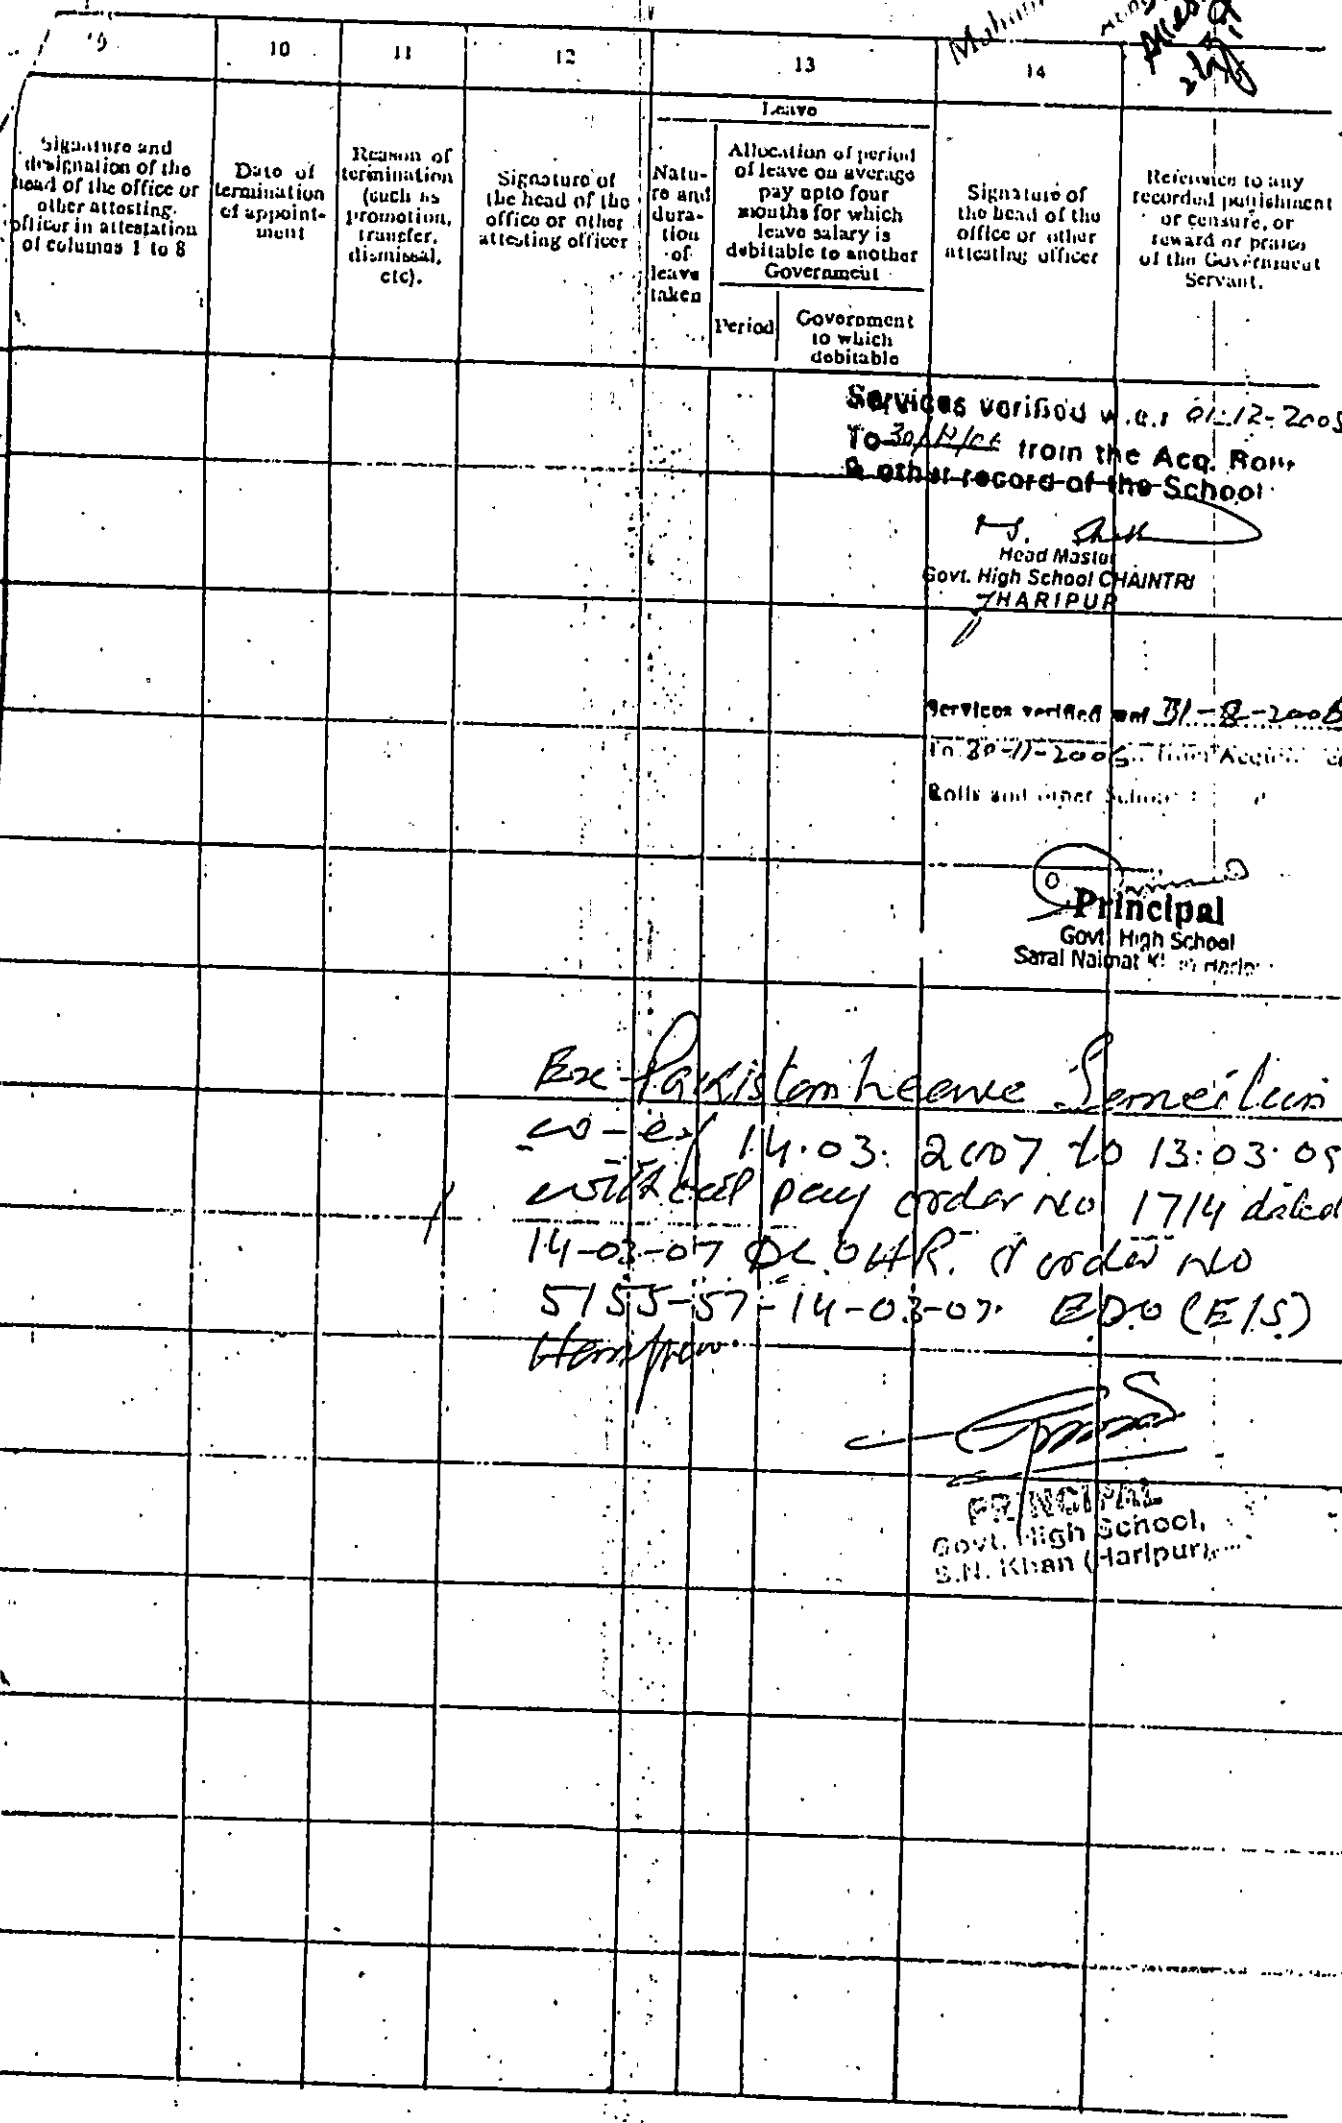 9 10 11 12 13 14
Signature and
designation of the
head of the office or
other attesting
officer in attestation
of columns 1 to 8
Date of
termination
of appoint-
ment
Reason of
termination
(such as
promotion,
transfer,
dismissal,
etc).
Signature of
the head of the
office or other
attesting officer
Leave
Natu-
re and
dura-
tion
of
leave
taken
Allocation of period
of leave on average
pay upto four
months for which
leave salary is
debitable to another
Government
Period
Government
to which
debitable
Signature of
the head of the
office or other
attesting officer
Reference to any
recorded punishment
or censure, or
reward or praise
of the Government
Servant.
Services verified w.e.f 01-12-2005
To from the Acq. Roll
& other record of the School
Head Master
Govt. High School CHAINTRI
HARIPUR
Services verified wef 31-8-200
To 30-11-200 from
Rolls and other School
Principal
Govt. High School
Sarai Naimat Haripur
Ex-Pakistan Leave Sanction
w-ef 14.03.2007 to 13.03.09
without pay order No 1714 dated
14-03-07 & order No
5155-57-14-03-07 EDO (E/S)
Haripur
PRINCIPAL
Govt. High School,
S.N. Khan (Haripur)